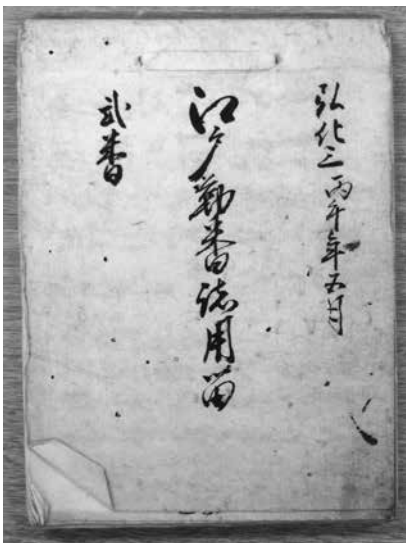 弘化三丙午年五月
江戸勤番諸用留
弐番